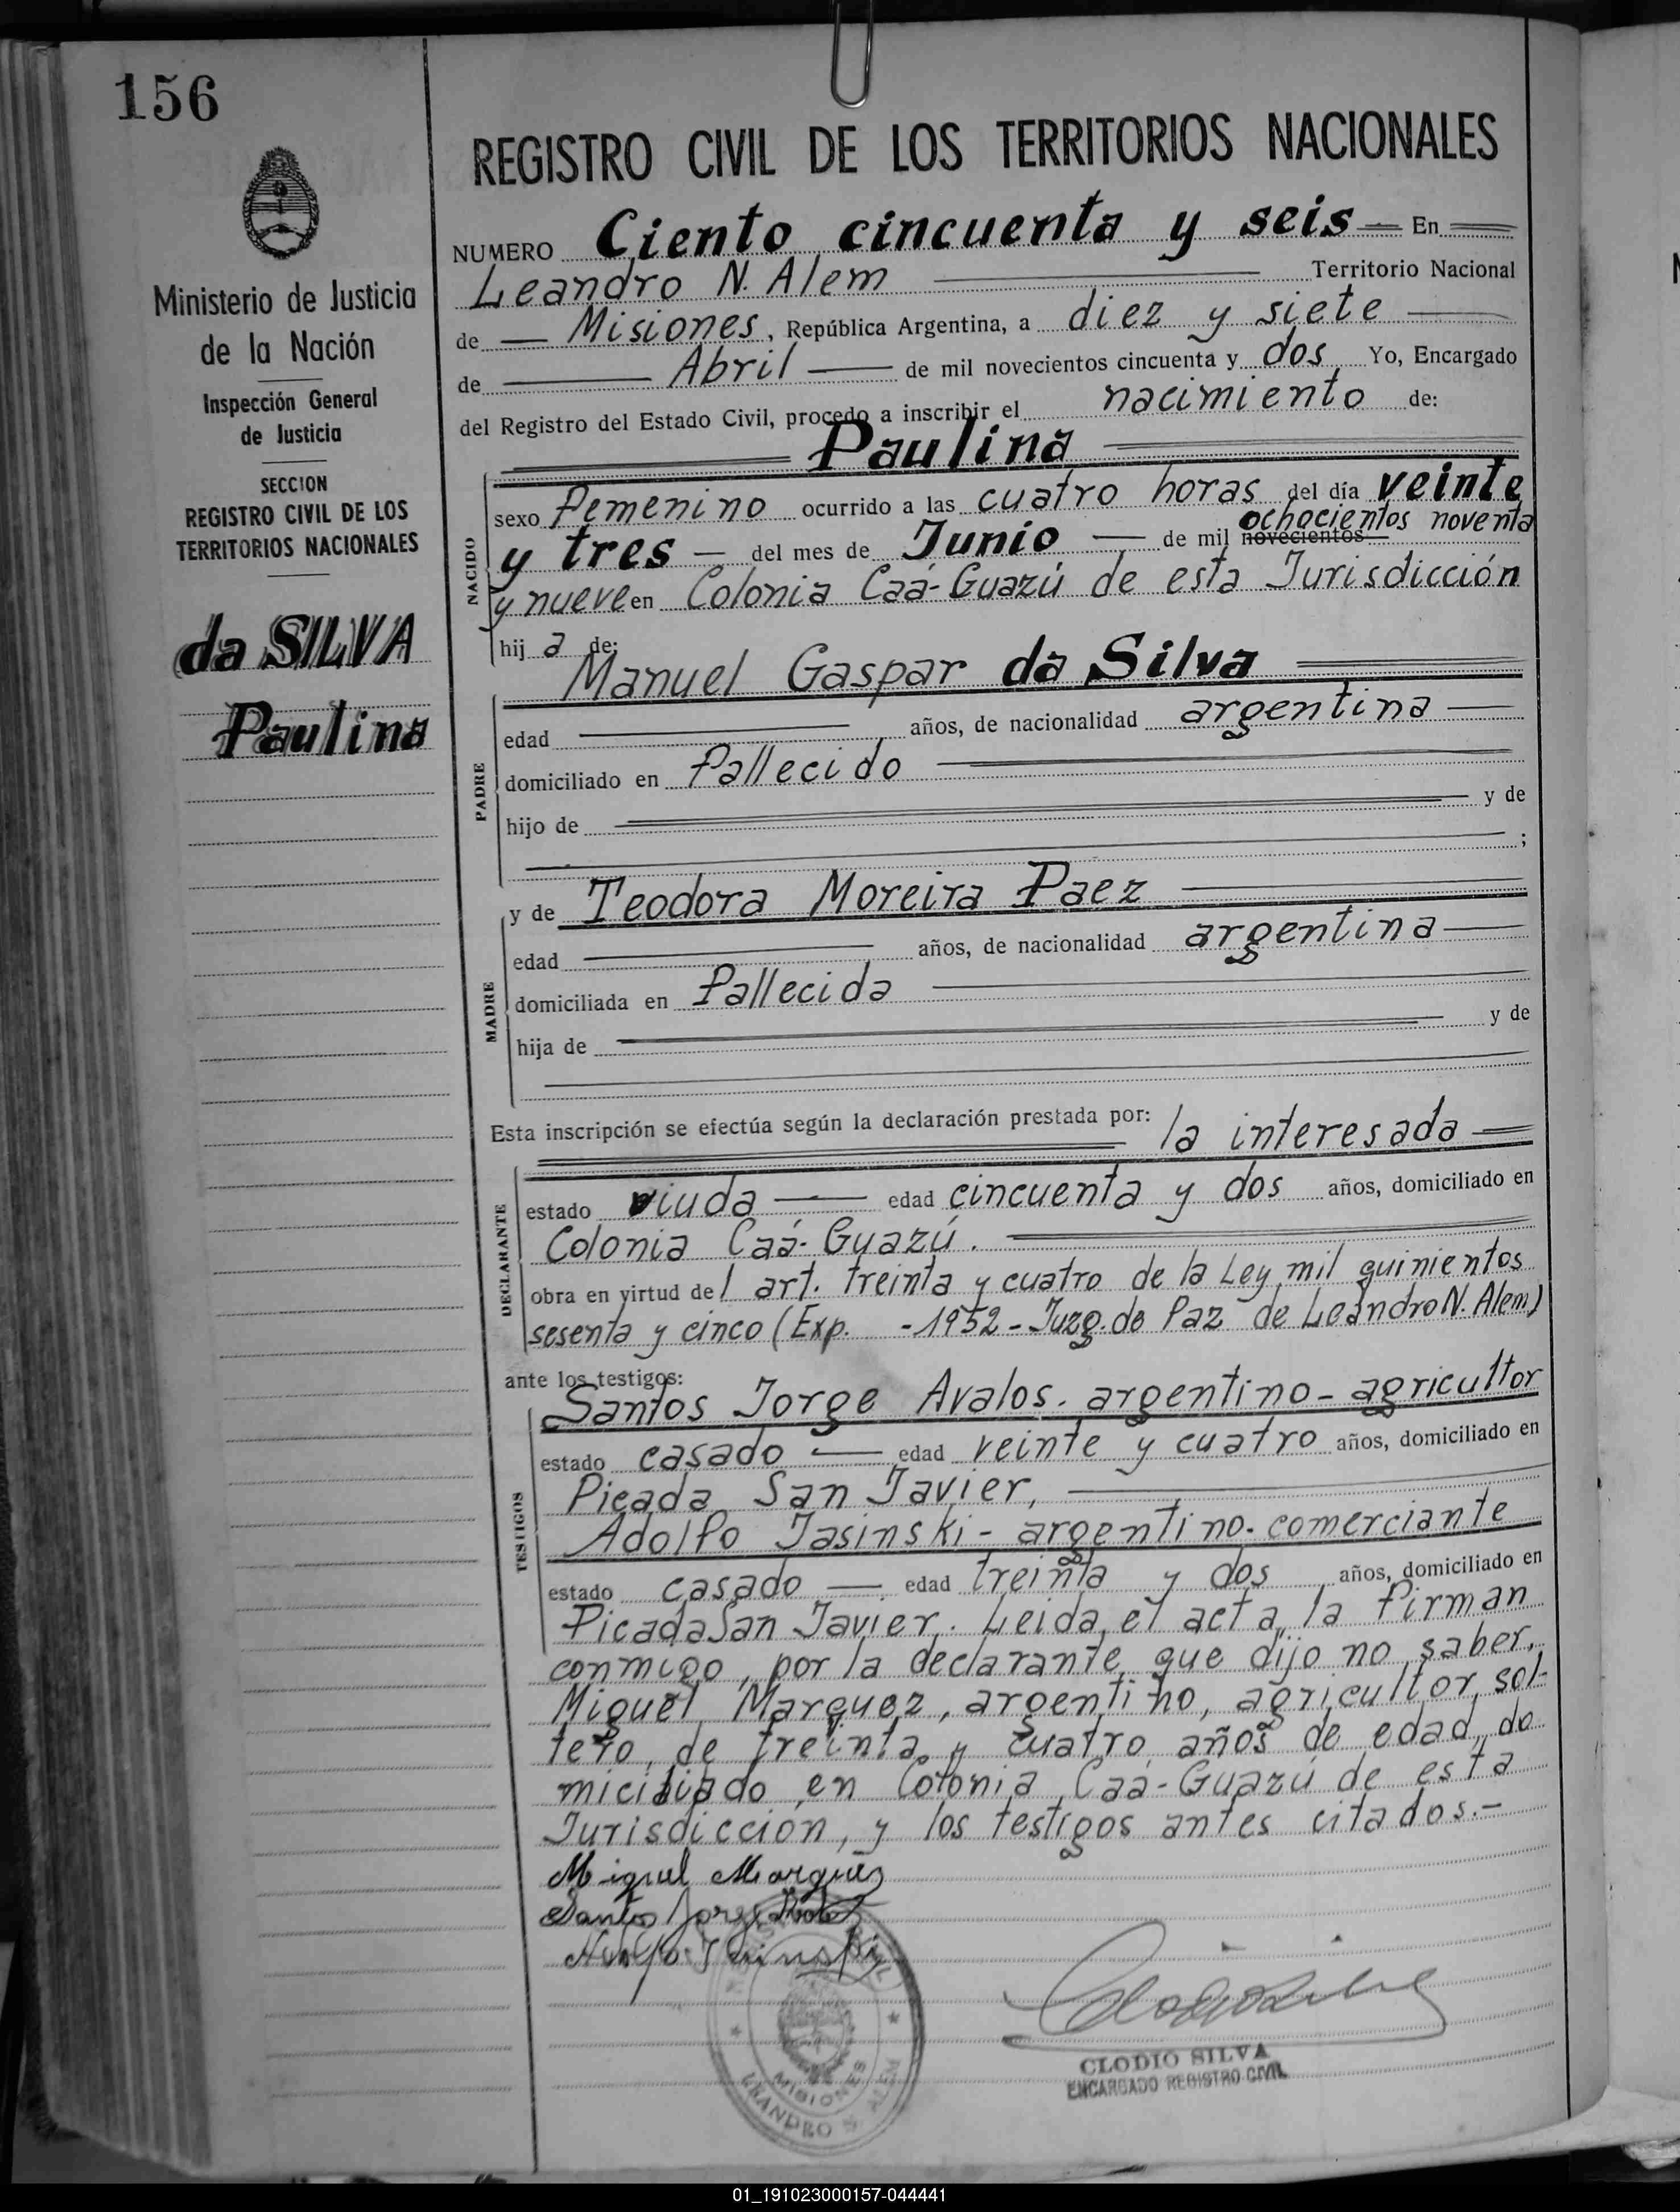 156
Ministerio de Justicia
de la Nación
Inspección General
de Justicia
SECCION
REGISTRO CIVIL DE LOS
TERRITORIOS NACIONALES
da SILVA
Paulina
REGISTRO CIVIL DE LOS TERRITORIOS NACIONALES
NUMERO Ciento cincuenta y seis — En
Leandro N. Alem Territorio Nacional
de — Misiones, República Argentina, a diez y siete
de Abril de mil novecientos cincuenta y dos Yo, Encargado
del Registro del Estado Civil, procedo a inscribir el nacimiento de:
Paulina
NACIDO
sexo femenino ocurrido a las cuatro horas del día veinte
ochocientos noventa
y tres — del mes de Junio — de mil novecientos
y nueve en Colonia Caá-Guazú de esta Jurisdicción
hij a de:
Manuel Gaspar da Silva
PADRE
edad años, de nacionalidad argentina
domiciliado en fallecido
hijo de y de
;
MADRE
y de Teodora Moreira Paez
edad años, de nacionalidad argentina
domiciliada en fallecida
hija de y de
Esta inscripción se efectúa según la declaración prestada por: la interesada
DECLARANTE
estado viuda — edad cincuenta y dos años, domiciliado en
Colonia Caá-Guazú.
obra en virtud de l art. treinta y cuatro de la Ley mil quinientos
sesenta y cinco (Exp. -1952-Juzg. de Paz de Leandro N. Alem)
ante los testigos:
TESTIGOS
Santos Jorge Avalos. argentino - agricultor
estado casado — edad veinte y cuatro años, domiciliado en
Picada San Javier,
Adolfo Jasinski - argentino. comerciante
estado casado — edad treinta y dos años, domiciliado en
Picada San Javier. Leida el acta, la firman
conmigo, por la declarante que dijo no saber,
Miguel Marquez, argentino, agricultor, sol-
tero, de treinta y cuatro años de edad, do
miciliado en Colonia Caá-Guazú de esta
Jurisdicción, y los testigos antes citados.-
Miguel Marquez
Santos Jorge
CLODIO SILVA
ENCARGADO REGISTRO CIVIL
MISIONES
LEANDRO N. ALEM
01_191023000157-044441